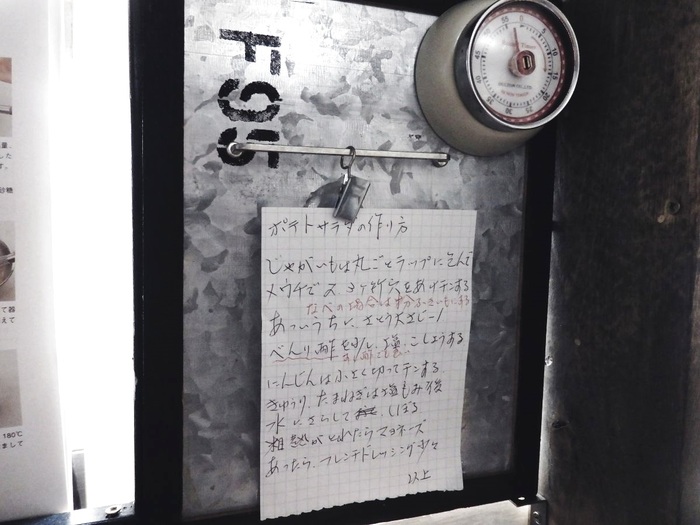 F95
ポテトサラダの作り方
じゃがいもは丸ごとラップに包んで
メウチで2、3ヶ所穴をあけチンする
なべの場合は粉ふきいもにする
あついうちに、さとう大さじ一1
べんり酢を少し、塩、こしょうする
にんじんは小さく切ってチンする
きゅうり、たまねぎは塩もみ後
水にさらして しぼる
熱がとれたらマヨネーズ
あったら、フレンチドレッシング少々
以上
量、
した
す。
砂糖
て器
えて
180℃
まして